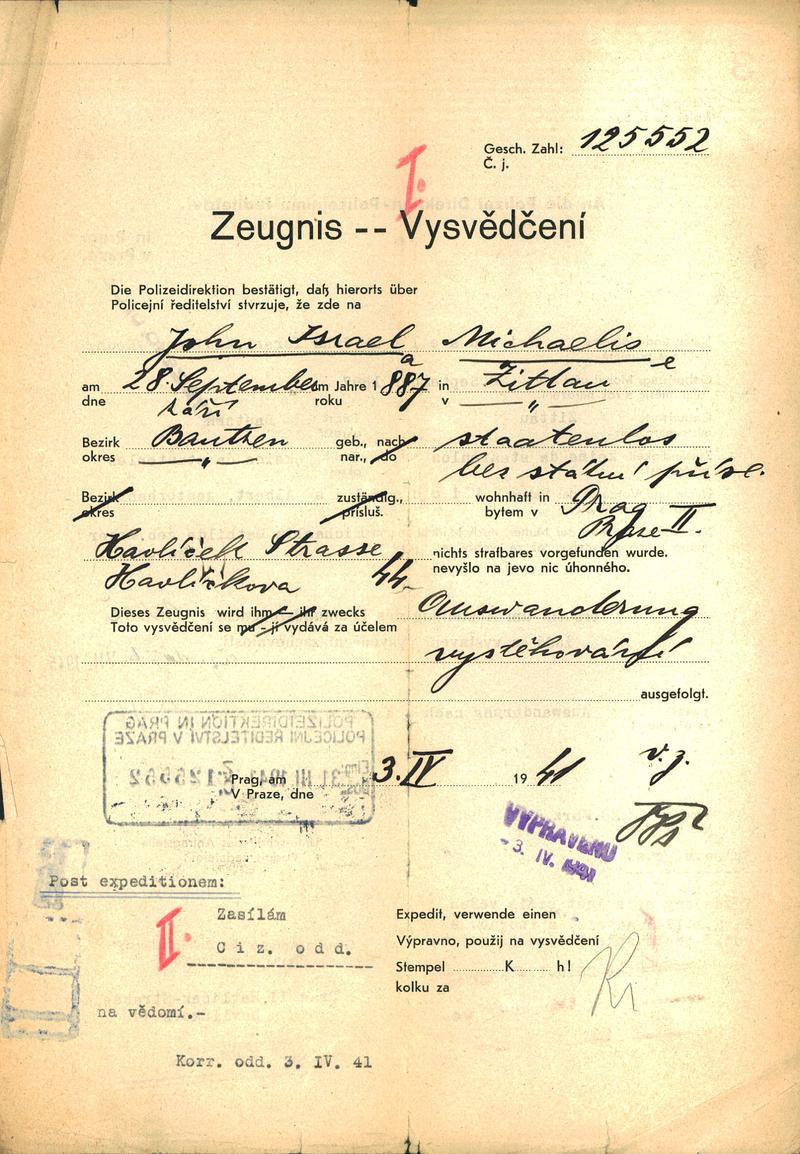 Gesch. Zahl: 125552
Č. j.
I.
Zeugnis -- Vysvědčení
Die Polizeidirektion bestätigt, daß hierorts über
Policejní ředitelství stvrzuje, že zde na
John Israel Michaelis
a e
am 28. September im Jahre 1887 in Zittau
dne září roku v — " —
Bezirk Bautzen geb., nach staatenlos
okres — " — nar., do bez státní přísl.
Bezirk zuständig., wohnhaft in Prag
okres přísluš. bytem v Praze II.
Havlíček Strasse nichts strafbares vorgefunden wurde.
Havlíčkova 44 nevyšlo na jevo nic úhonného.
Dieses Zeugnis wird ihm – ihr zwecks Auswanderung
Toto vysvědčení se mu – jí vydává za účelem
vystěhování
ausgefolgt.
POLIZEIDIREKTION IN PRAG
POLICEJNÍ ŘEDITELSTVÍ V PRAZE
31. III. 1941
125552
Prag, am 3. IV. 1941 v. z.
V Praze, dne
VYPRAVENO
- 3. IV. 1941
Post expeditionem:
II. Zasílám
Ciz. odd.
na vědomí.-
Korr. odd. 3. IV. 41
Expedit, verwende einen
Výpravno, použij na vysvědčení
Stempel ............K......... h!
kolku za